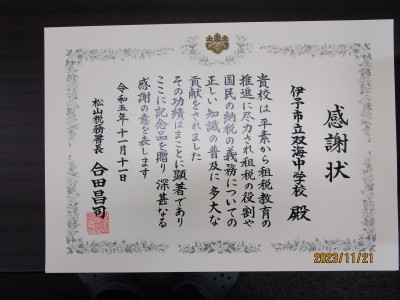 感謝状
伊予市立双海中学校 殿
貴校は平素から租税教育の
推進に尽力され租税の役割や
国民の納税の義務についての
正しい知識の普及に多大な
貢献をされました
その功績はまことに顕著であり
ここに記念品を贈り深甚なる
感謝の意を表します
令和五年十一月十一日
松山税務署長 合田昌司
2023/11/21